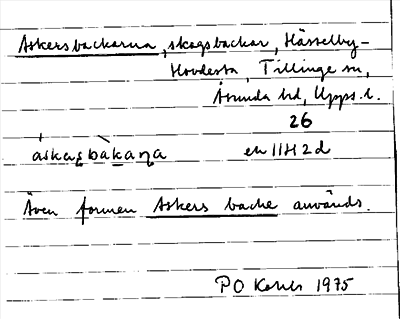 Askersbackarna, skogsbackar, Hässelby-
Hovdesta, Tillinge sn,
Åsunda hd, Upps. l.
26
áskaʂbàkaɳa ek 11H2d
Även formen Askers backe används.
PO 1975